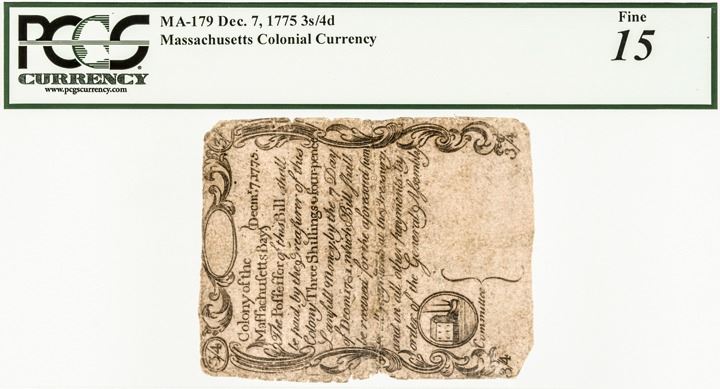 PCGS
CURRENCY
www.pcgscurrency.com
MA-179 Dec. 7, 1775 3s/4d
Massachusetts Colonial Currency
Fine
15
Colony of the
Massachusetts Bay} Decmr. 7, 1775.
The Possessor of this Bill shall
be paid by the Treasurer of this
Colony Three Shillings & four pence
Lawfull Money by the 7 Day
Decem 1781 which Bill shall
for the aforesaid sum
and in all other Payments by
order of the General Assembly.
Committee
3/4
3/4
3/4